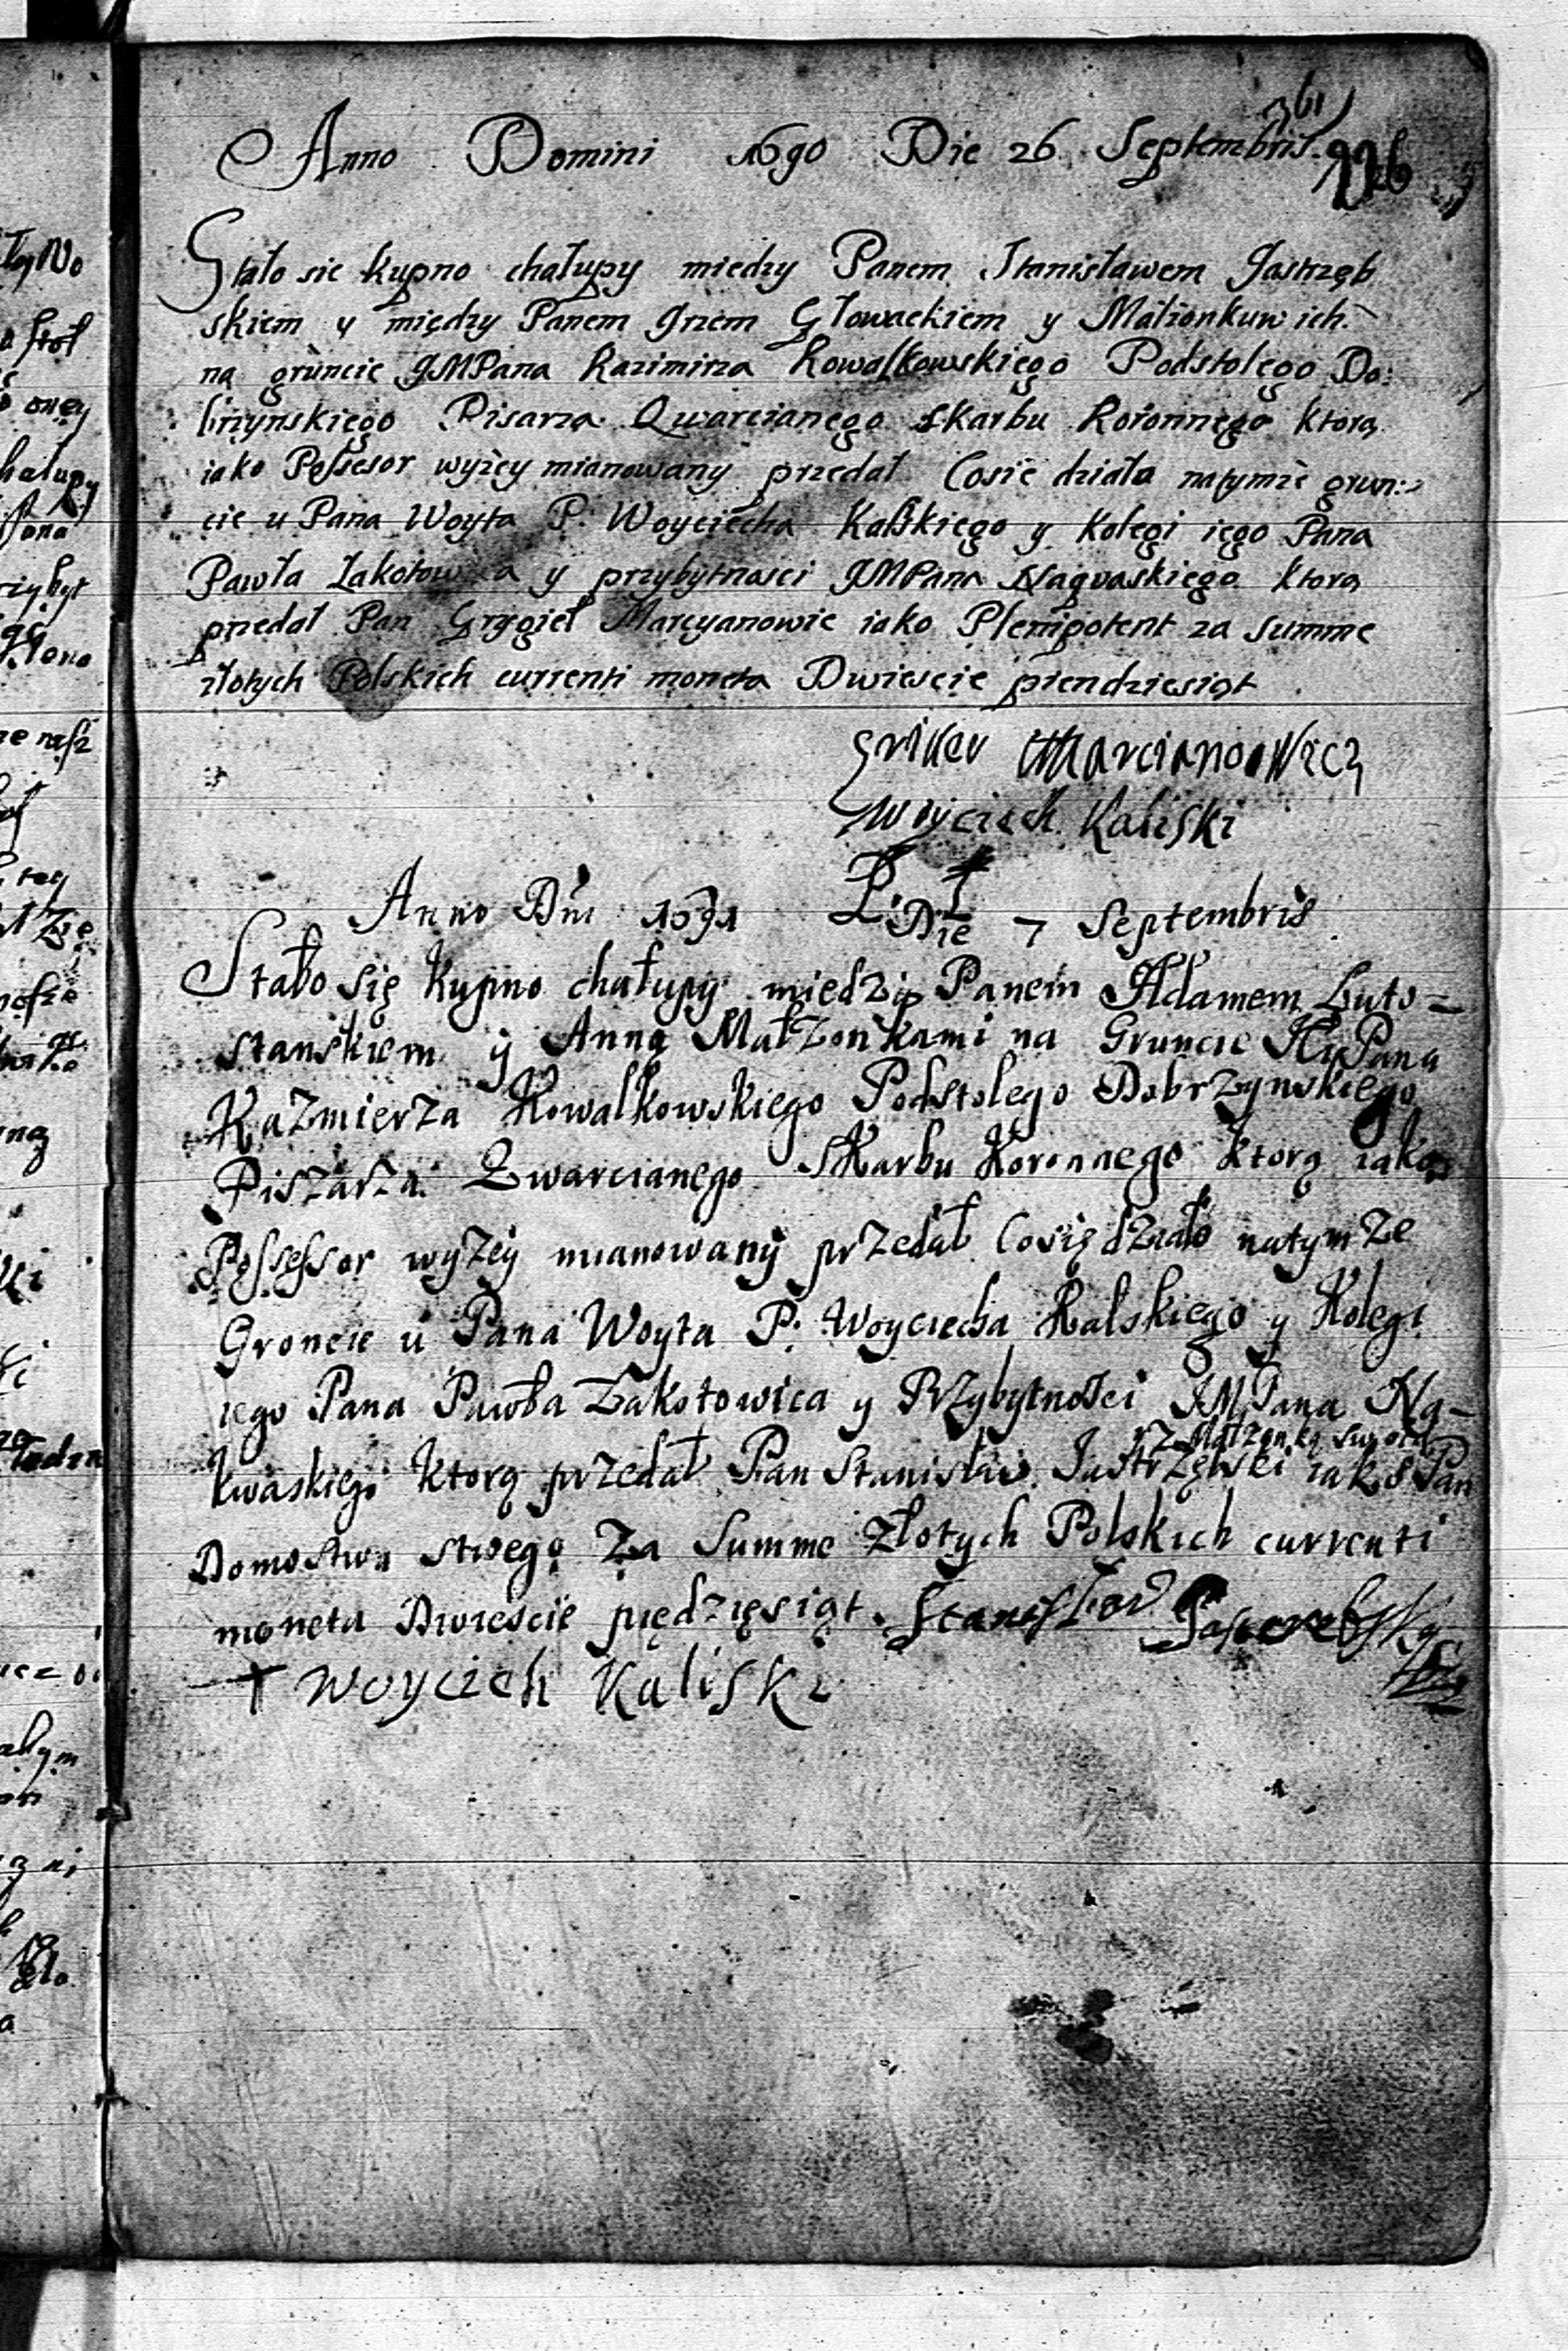 361
Anno Domini 1690 Die 26 Septembris. 226
Stało sie kupno chałupy miedzy Panem Stanisławem Jastrzęb
skiem y między Panem Głowackiem y Małżonkuw ich.
na grùncie JMPana Kazimirza Kowalkowskiego Podstolego Do:
brzynskiego Pisarza Qwarcianego Skarbu Koronnego ktorą
iako Possesor wyżey mianowany przedał Cosie działo natymże grun:
cie u Pana Woyta P: Woyciecha Kalskiego y Kolegi iego Pana
Pawła y przybytnosci JMPana Nagvaskiego ktorą
przedał Pan Grygiel Marcyanowic iako Plenipotent za summe
złotych Polskich currenti moneta Dwiescie piendziesiąt
Marcianowicz
Woyciech Kaliski
Anno Dni 1691 Die 7 Septembris
Stało się Kupno chałupy miedzy Panem Adamem Luto-
stanskiem y Anną Małzonkami na Gruncie Pana
Kazmierza Kowalkowskiego Podstolego Dobrzynskiego
Piszarza Qwarcianego Skarbu Koronnego ktorą iako
Possessor wyzey mianowany przedał Cosię działo natymze
Groncie u Pana Woyta P: Woyciecha Kalskiego y Kolegi
iego Pana Pawła Zakotowica y Przybytnosci JMPana Na-
y z Małzonką swoią
kwaskiego Ktorą przedał Pan Stanisław Jastrzęmski iako Pan
Domostwa swego Za Summe Złotych Polskich currenti
moneta Dwiescie piędzięsiąt. Stanisław
† Woyciech Kaliski